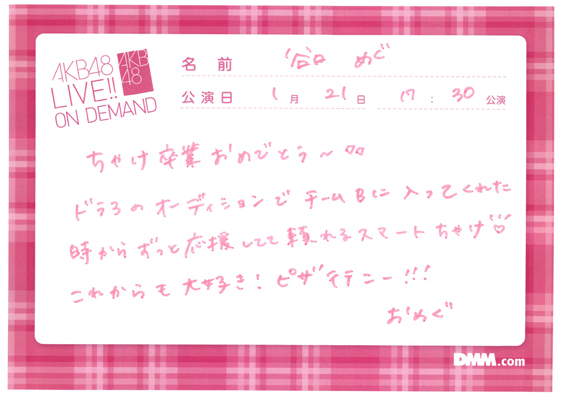 AKB48
LIVE!!
ON DEMAND
AKB
48
名 前 谷口 めぐ
公演日 1月 21日 17:30 公演
ちゃけ卒業おめでとう〜♡♡
ドラ3のオーディションでチームBに入ってくれた
時からずっと応援してて頼れるスマートちゃけ♡
これからも大好き! ピザ
おめぐ
DMM.com